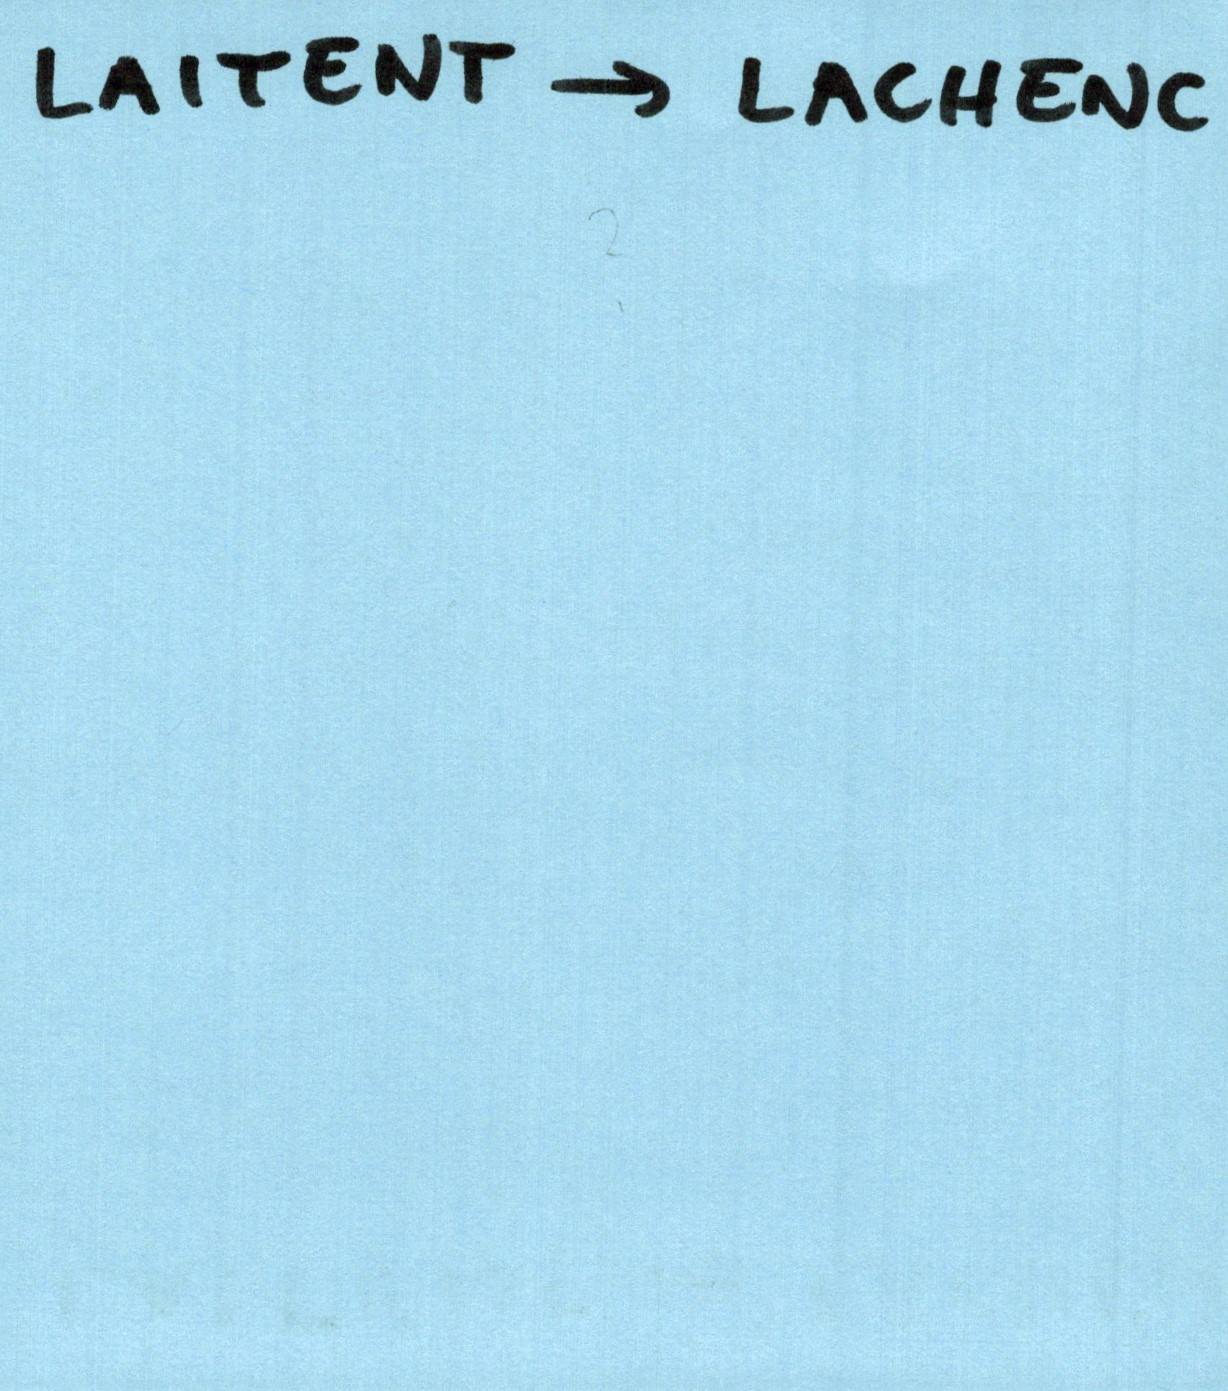 LAITENT → LACHENC
2